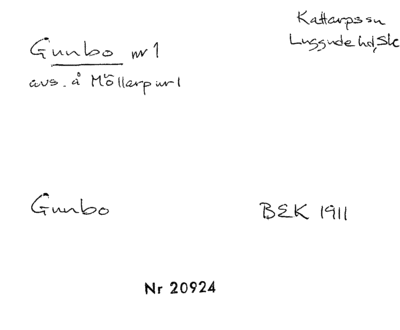 Kattarps sn
Luggude hd, Sk
Gunbo nr 1
avs. å Möllarp nr 1
Gunbo
BEK 1911
Nr 20924